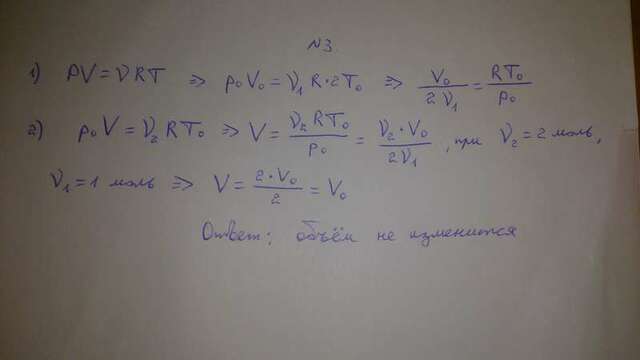 N3.
1) PV = νRT ⇒ p₀V₀ = ν₁ R · 2T₀ ⇒ V₀/2ν₁ = RT₀/p₀
2) p₀V = ν₂RT₀ ⇒ V = ν₂RT₀/p₀ = ν₂·V₀/2ν₁, при ν₂ = 2 моль,
ν₁ = 1 моль ⇒ V = 2·V₀/2 = V₀
Ответ: объём не изменится